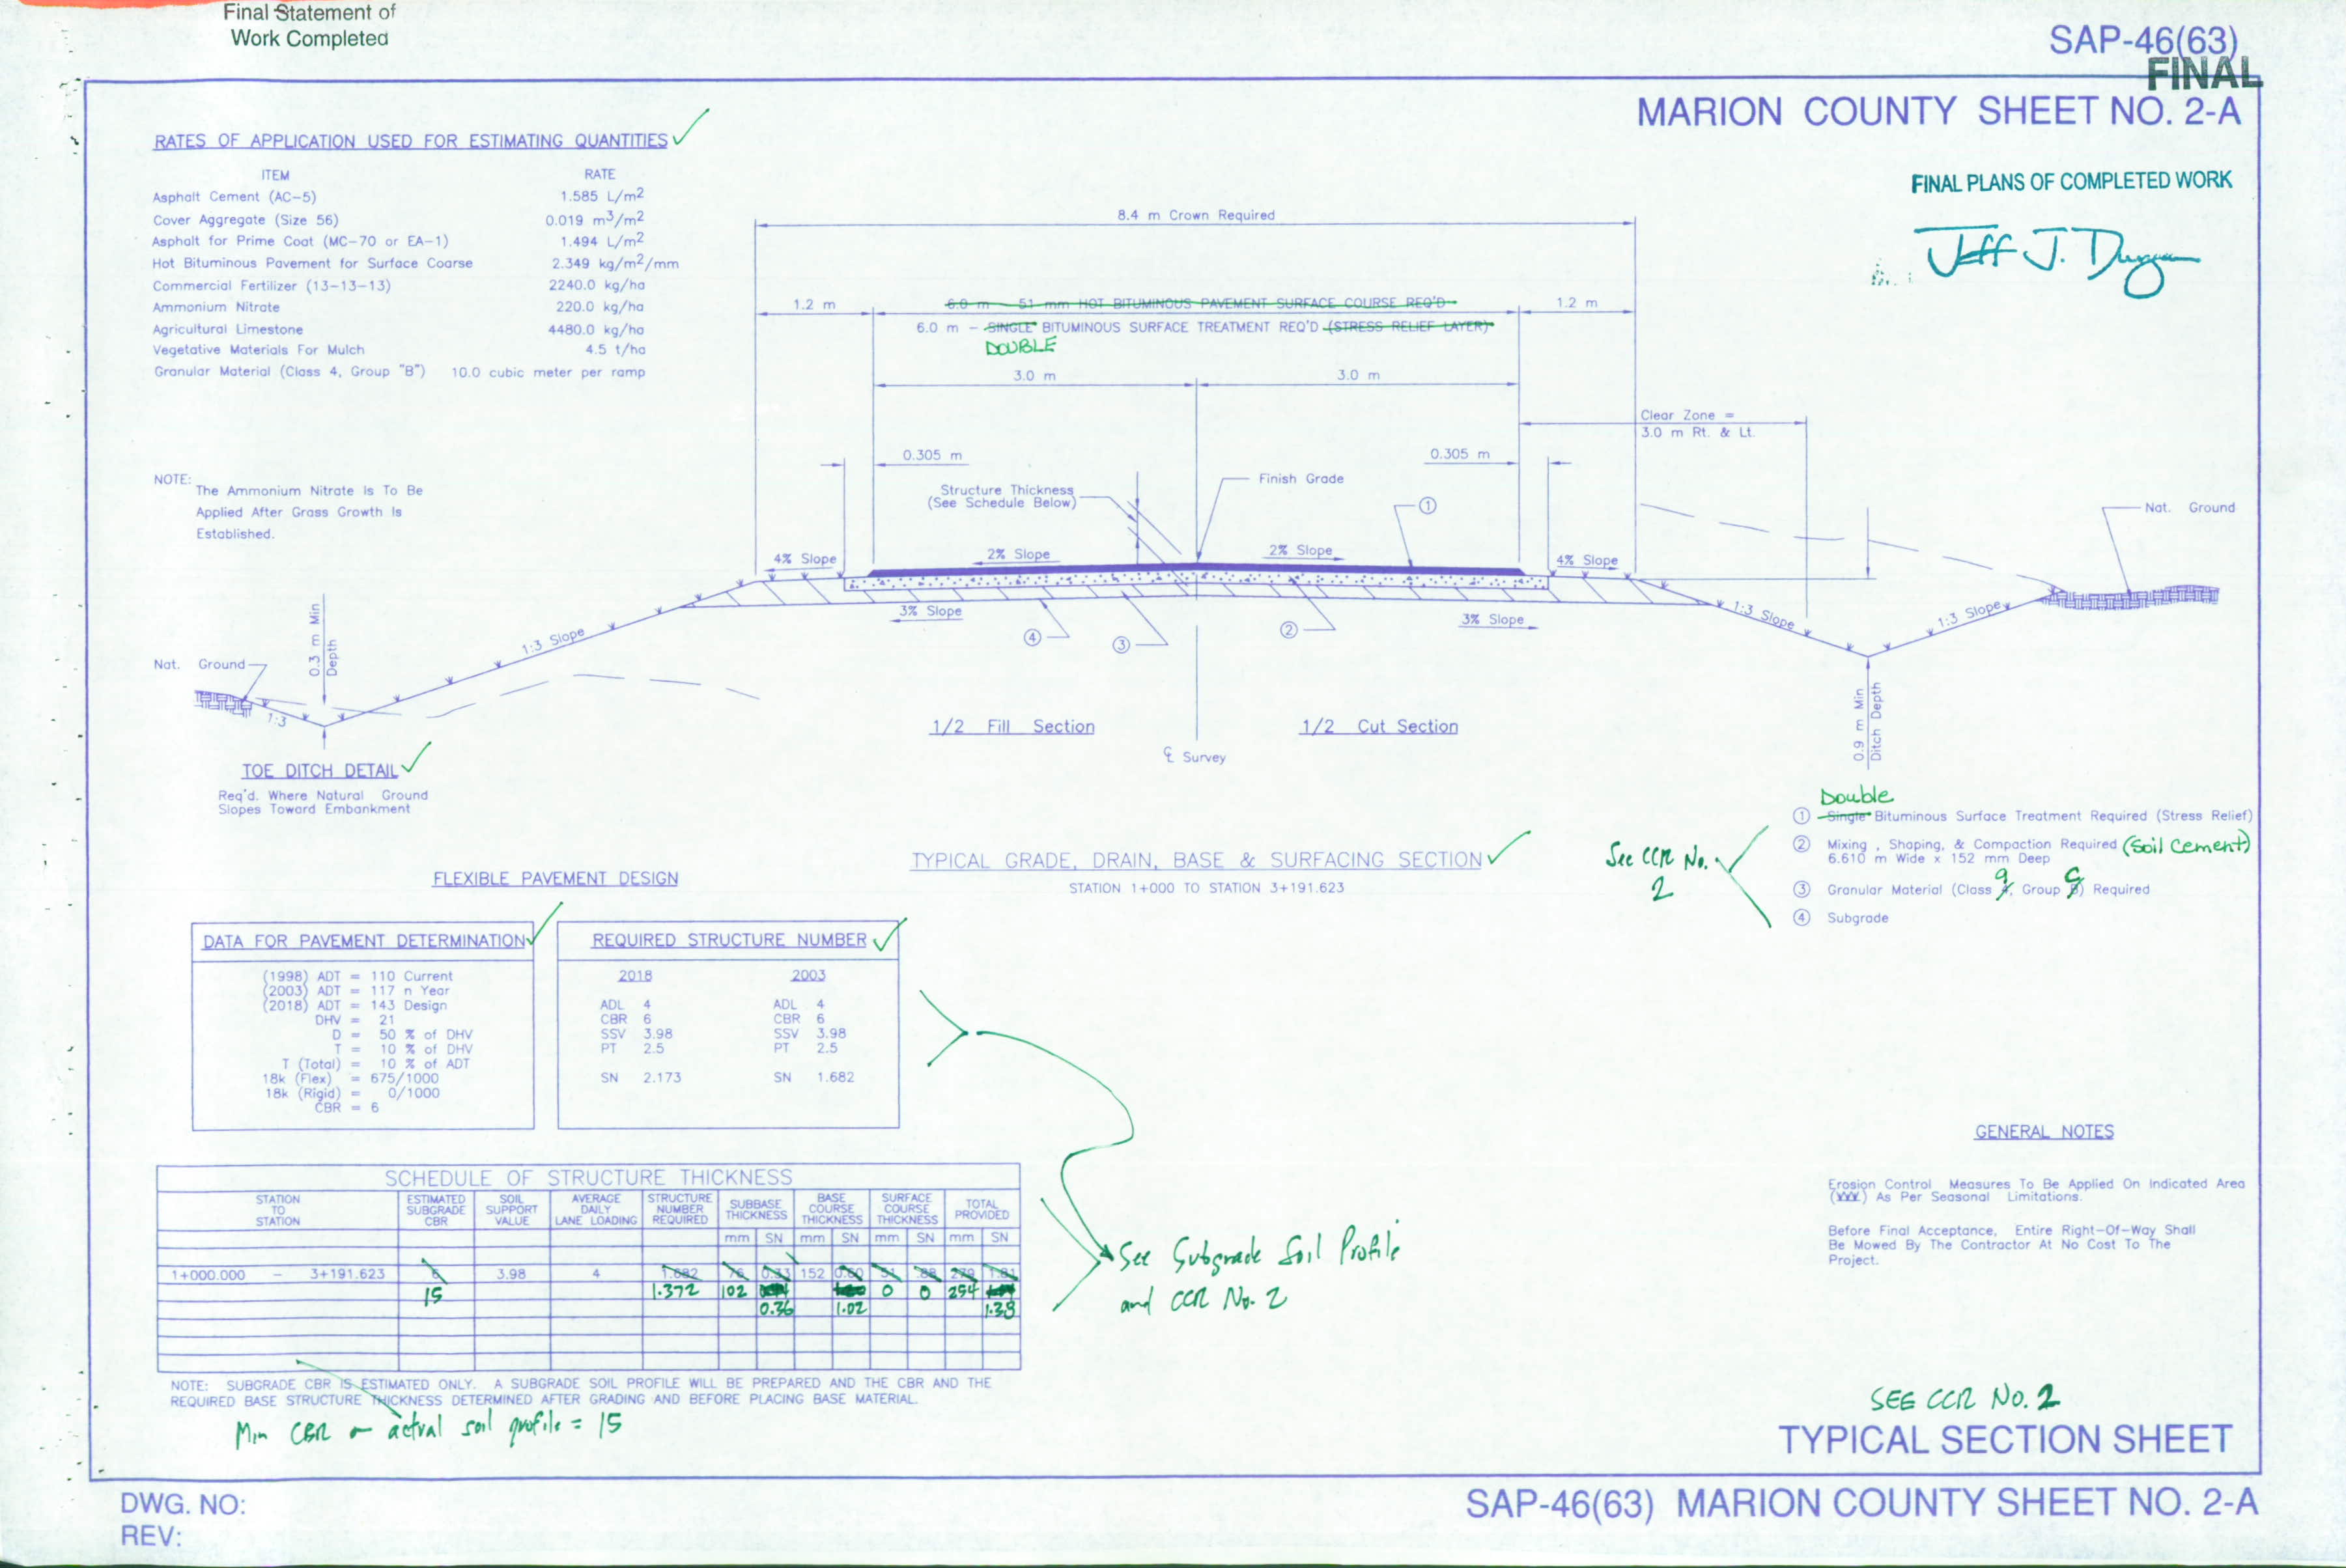 Final Statement of
Work Completed
SAP-46(63)
FINAL
MARION COUNTY SHEET NO. 2-A
FINAL PLANS OF COMPLETED WORK
Jeff J.
RATES OF APPLICATION USED FOR ESTIMATING QUANTITIES
ITEM RATE
Asphalt Cement (AC-5) 1.585 L/m2
Cover Aggregate (Size 56) 0.019 m3/m2
Asphalt for Prime Coat (MC-70 or EA-1) 1.494 L/m2
Hot Bituminous Pavement for Surface Coarse 2.349 kg/m2/mm
Commercial Fertilizer (13-13-13) 2240.0 kg/ha
Ammonium Nitrate 220.0 kg/ha
Agricultural Limestone 4480.0 kg/ha
Vegetative Materials For Mulch 4.5 t/ha
Granular Material (Class 4, Group "B") 10.0 cubic meter per ramp
NOTE:
The Ammonium Nitrate Is To Be
Applied After Grass Growth Is
Established.
8.4 m Crown Required
1.2 m
6.0 m - 51 mm HOT BITUMINOUS PAVEMENT SURFACE COURSE REQ'D
1.2 m
6.0 m - SINGLE BITUMINOUS SURFACE TREATMENT REQ'D (STRESS RELIEF LAYER)
DOUBLE
3.0 m 3.0 m
Clear Zone =
3.0 m Rt. & Lt.
0.305 m 0.305 m
Structure Thickness
(See Schedule Below)
Finish Grade
1
Nat. Ground
4% Slope 2% Slope 2% Slope 4% Slope
3% Slope 3% Slope
4 3 2
1:3 Slope
1:3 Slope 1:3 Slope
0.3 m Min
Depth
Nat. Ground
1:3
1/2 Fill Section
1/2 Cut Section
℄ Survey
0.9 m Min
Ditch Depth
TOE DITCH DETAIL
Req'd. Where Natural Ground
Slopes Toward Embankment
TYPICAL GRADE, DRAIN, BASE & SURFACING SECTION
STATION 1+000 TO STATION 3+191.623
See CCR No.
2
Double
1 Single Bituminous Surface Treatment Required (Stress Relief)
2 Mixing , Shaping, & Compaction Required (Soil Cement)
6.610 m Wide x 152 mm Deep
9 C
3 Granular Material (Class 4, Group B) Required
4 Subgrade
FLEXIBLE PAVEMENT DESIGN
DATA FOR PAVEMENT DETERMINATION
(1998) ADT = 110 Current
(2003) ADT = 117 n Year
(2018) ADT = 143 Design
DHV = 21
D = 50 % of DHV
T = 10 % of DHV
T (Total) = 10 % of ADT
18k (Flex) = 675/1000
18k (Rigid) = 0/1000
CBR = 6
REQUIRED STRUCTURE NUMBER
2018 2003
ADL 4 ADL 4
CBR 6 CBR 6
SSV 3.98 SSV 3.98
PT 2.5 PT 2.5
SN 2.173 SN 1.682
SCHEDULE OF STRUCTURE THICKNESS
STATION
TO
STATION
ESTIMATED
SUBGRADE
CBR
SOIL
SUPPORT
VALUE
AVERAGE
DAILY
LANE LOADING
STRUCTURE
NUMBER
REQUIRED
SUBBASE
THICKNESS
BASE
COURSE
THICKNESS
SURFACE
COURSE
THICKNESS
TOTAL
PROVIDED
mm SN mm SN mm SN mm SN
1+000.000 - 3+191.623 6 3.98 4 1.682 76 0.33 152 0.60 51 .88 279 1.81
15 1.372 102 0 0 254
0.36 1.02 1.38
See Subgrade Soil Profile
and CCR No. 2
NOTE: SUBGRADE CBR IS ESTIMATED ONLY. A SUBGRADE SOIL PROFILE WILL BE PREPARED AND THE CBR AND THE
REQUIRED BASE STRUCTURE THICKNESS DETERMINED AFTER GRADING AND BEFORE PLACING BASE MATERIAL.
Min CBR actual soil profile = 15
GENERAL NOTES
Erosion Control Measures To Be Applied On Indicated Area
As Per Seasonal Limitations.
Before Final Acceptance, Entire Right-Of-Way Shall
Be Mowed By The Contractor At No Cost To The
Project.
SEE CCR NO. 2
TYPICAL SECTION SHEET
DWG. NO:
REV:
SAP-46(63) MARION COUNTY SHEET NO. 2-A